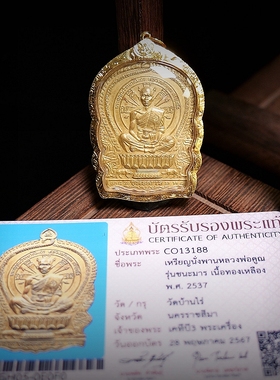 บัตรรับรองพระแท้
CERTIFICATE OF AUTHENTICITY
ประเภทพระ CO13188
ชื่อพระ เหรียญนั่งพานหลวงพ่อคูณ
รุ่นชนะมาร เนื้อทองเหลือง
พ.ศ. 2537
วัด / กรุ วัดบ้านไร่
จังหวัด นครราชสีมา
เจ้าของพระ เคทีปิ3 พระเครื่อง
วันออกบัตร 28 พฤษภาคม 2567